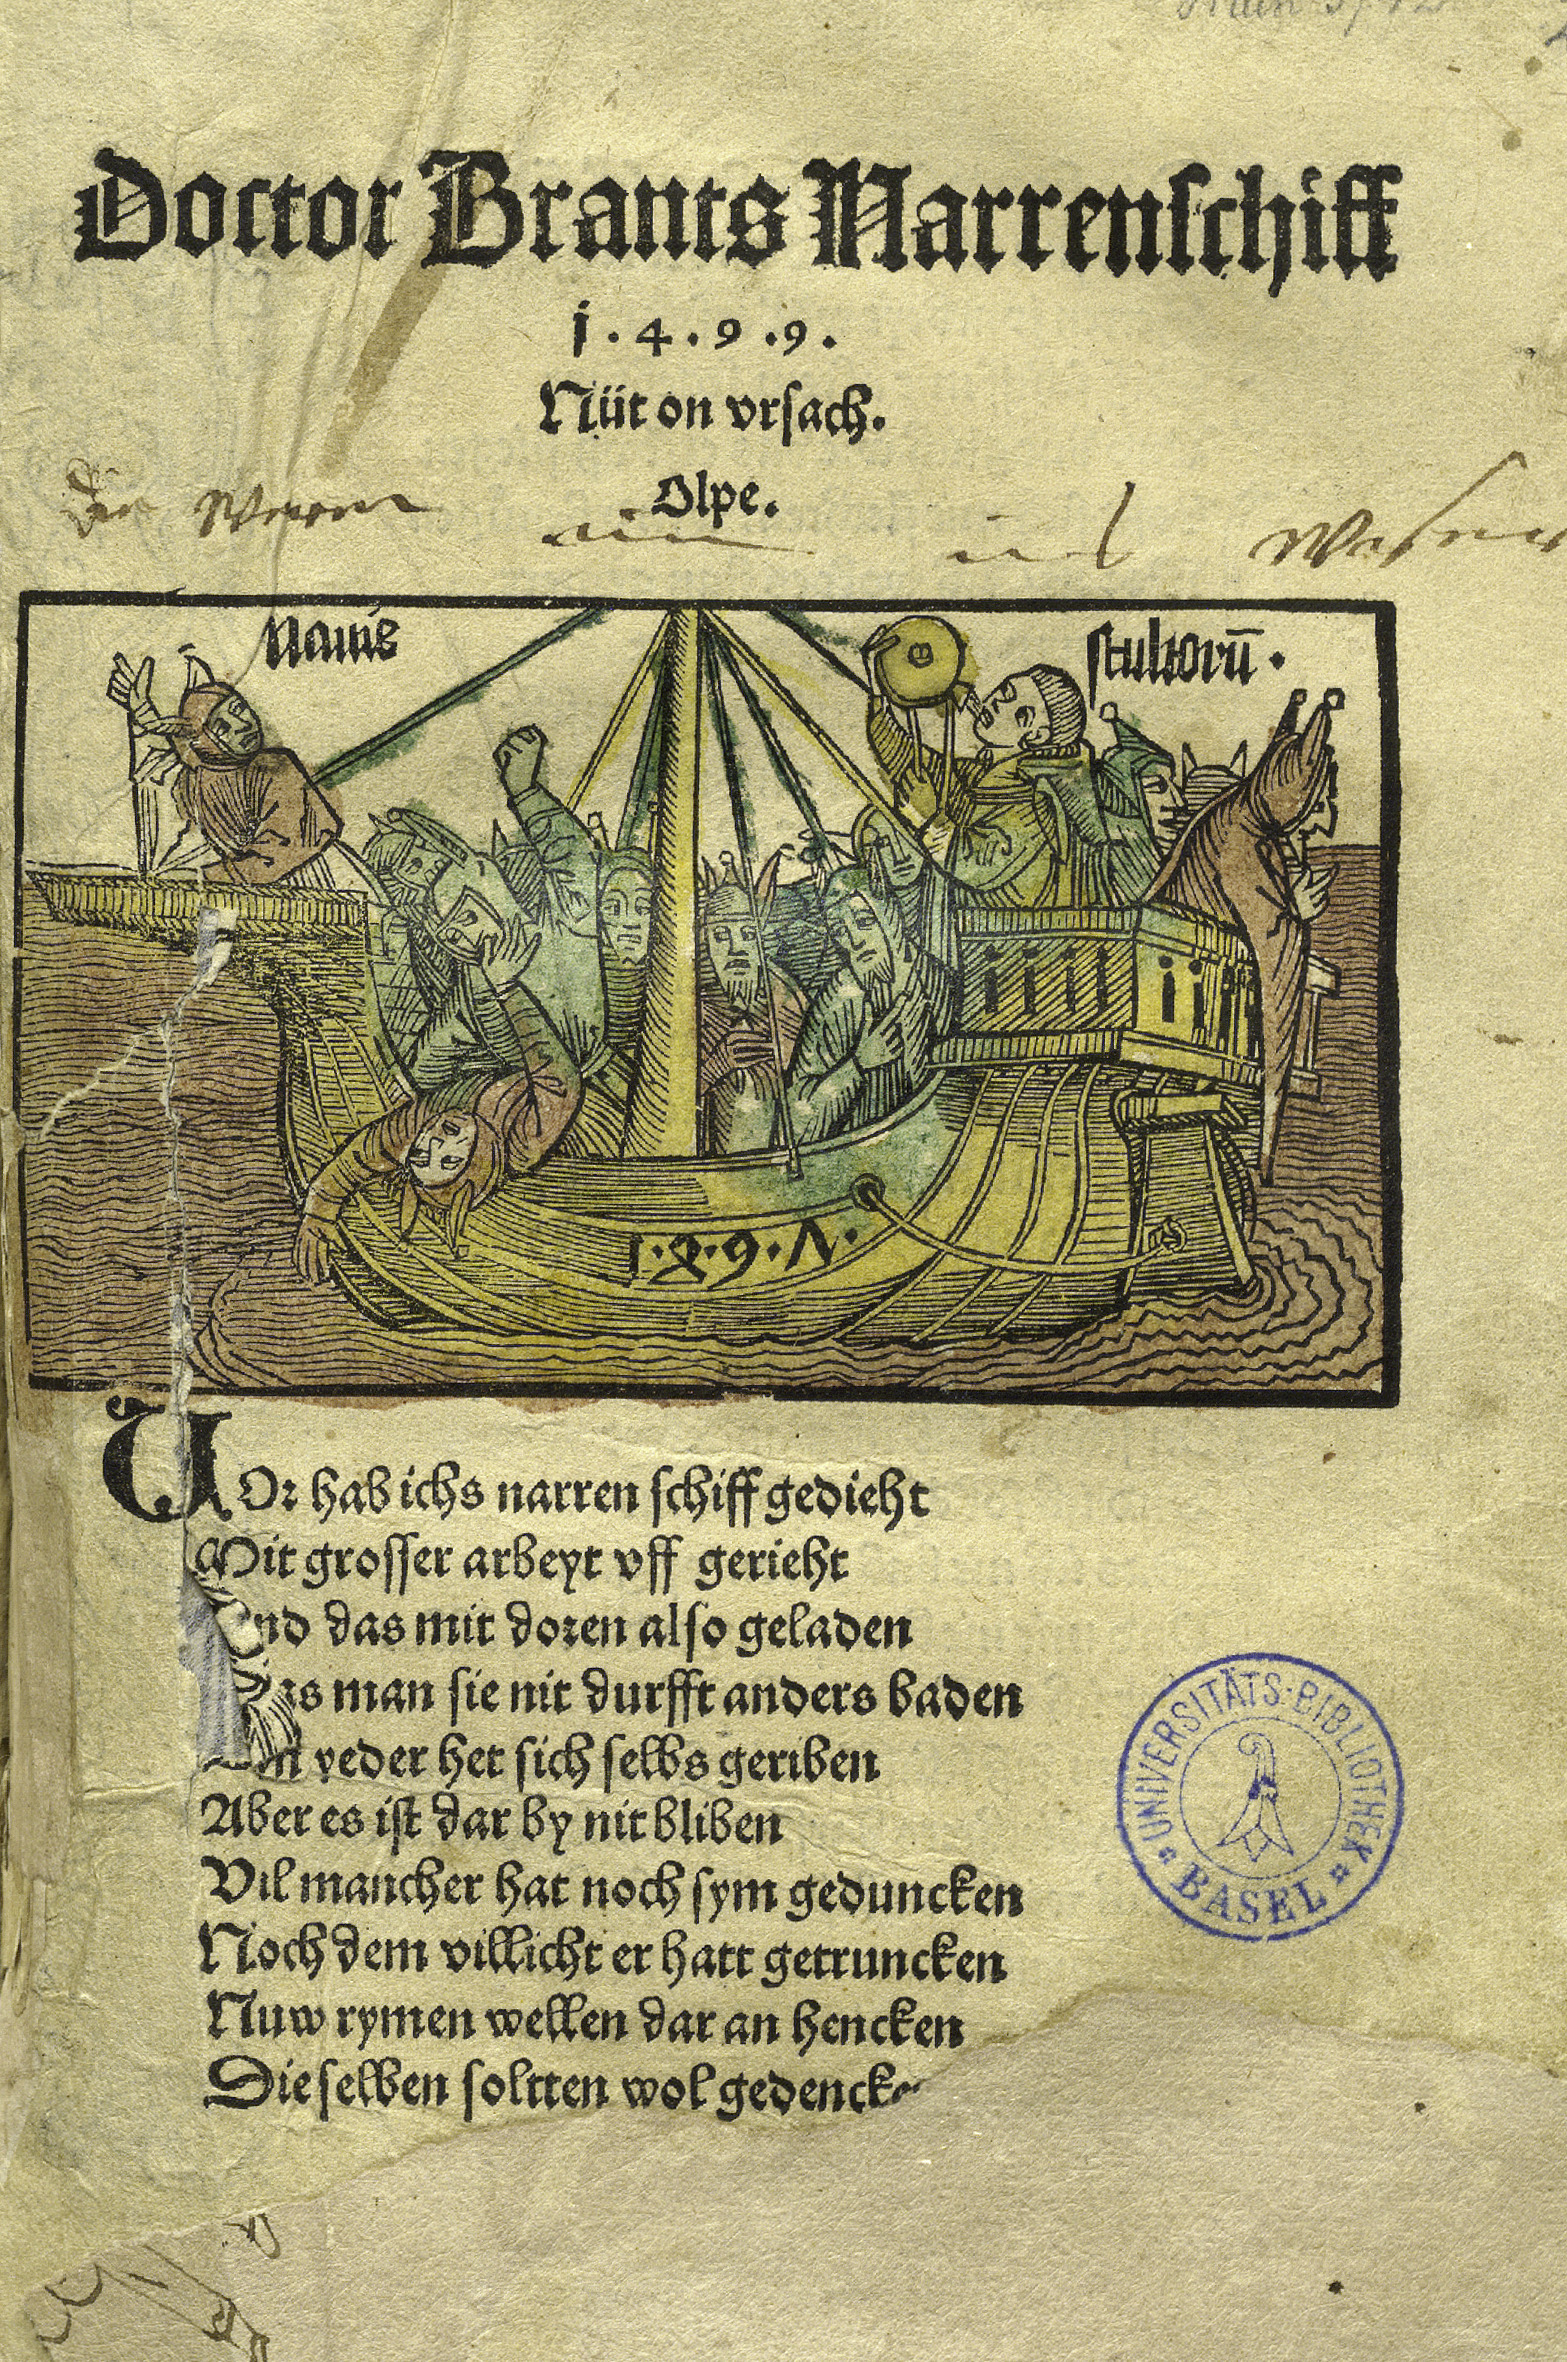 Doctor Brants Narrenschiff
1.4.9.9.
Nüt on vrsach.
Olpe.
Nauis stultorū.
1.4.9.Λ.
VOr hab ichs narren schiff gedieht
Mit grosser arbeyt vff gerieht
das mit doren also geladen
man sie nit durfft anders baden
yeder het sich selbs geriben
Aber es ist dar by nit bliben
Vil mancher hat noch sym geduncken
Noch dem villicht er hatt getruncken
Nuw rymen wellen dar an hencken
Die selben soltten wol gedencke
UNIVERSITÄTS-BIBLIOTHEK
BASEL